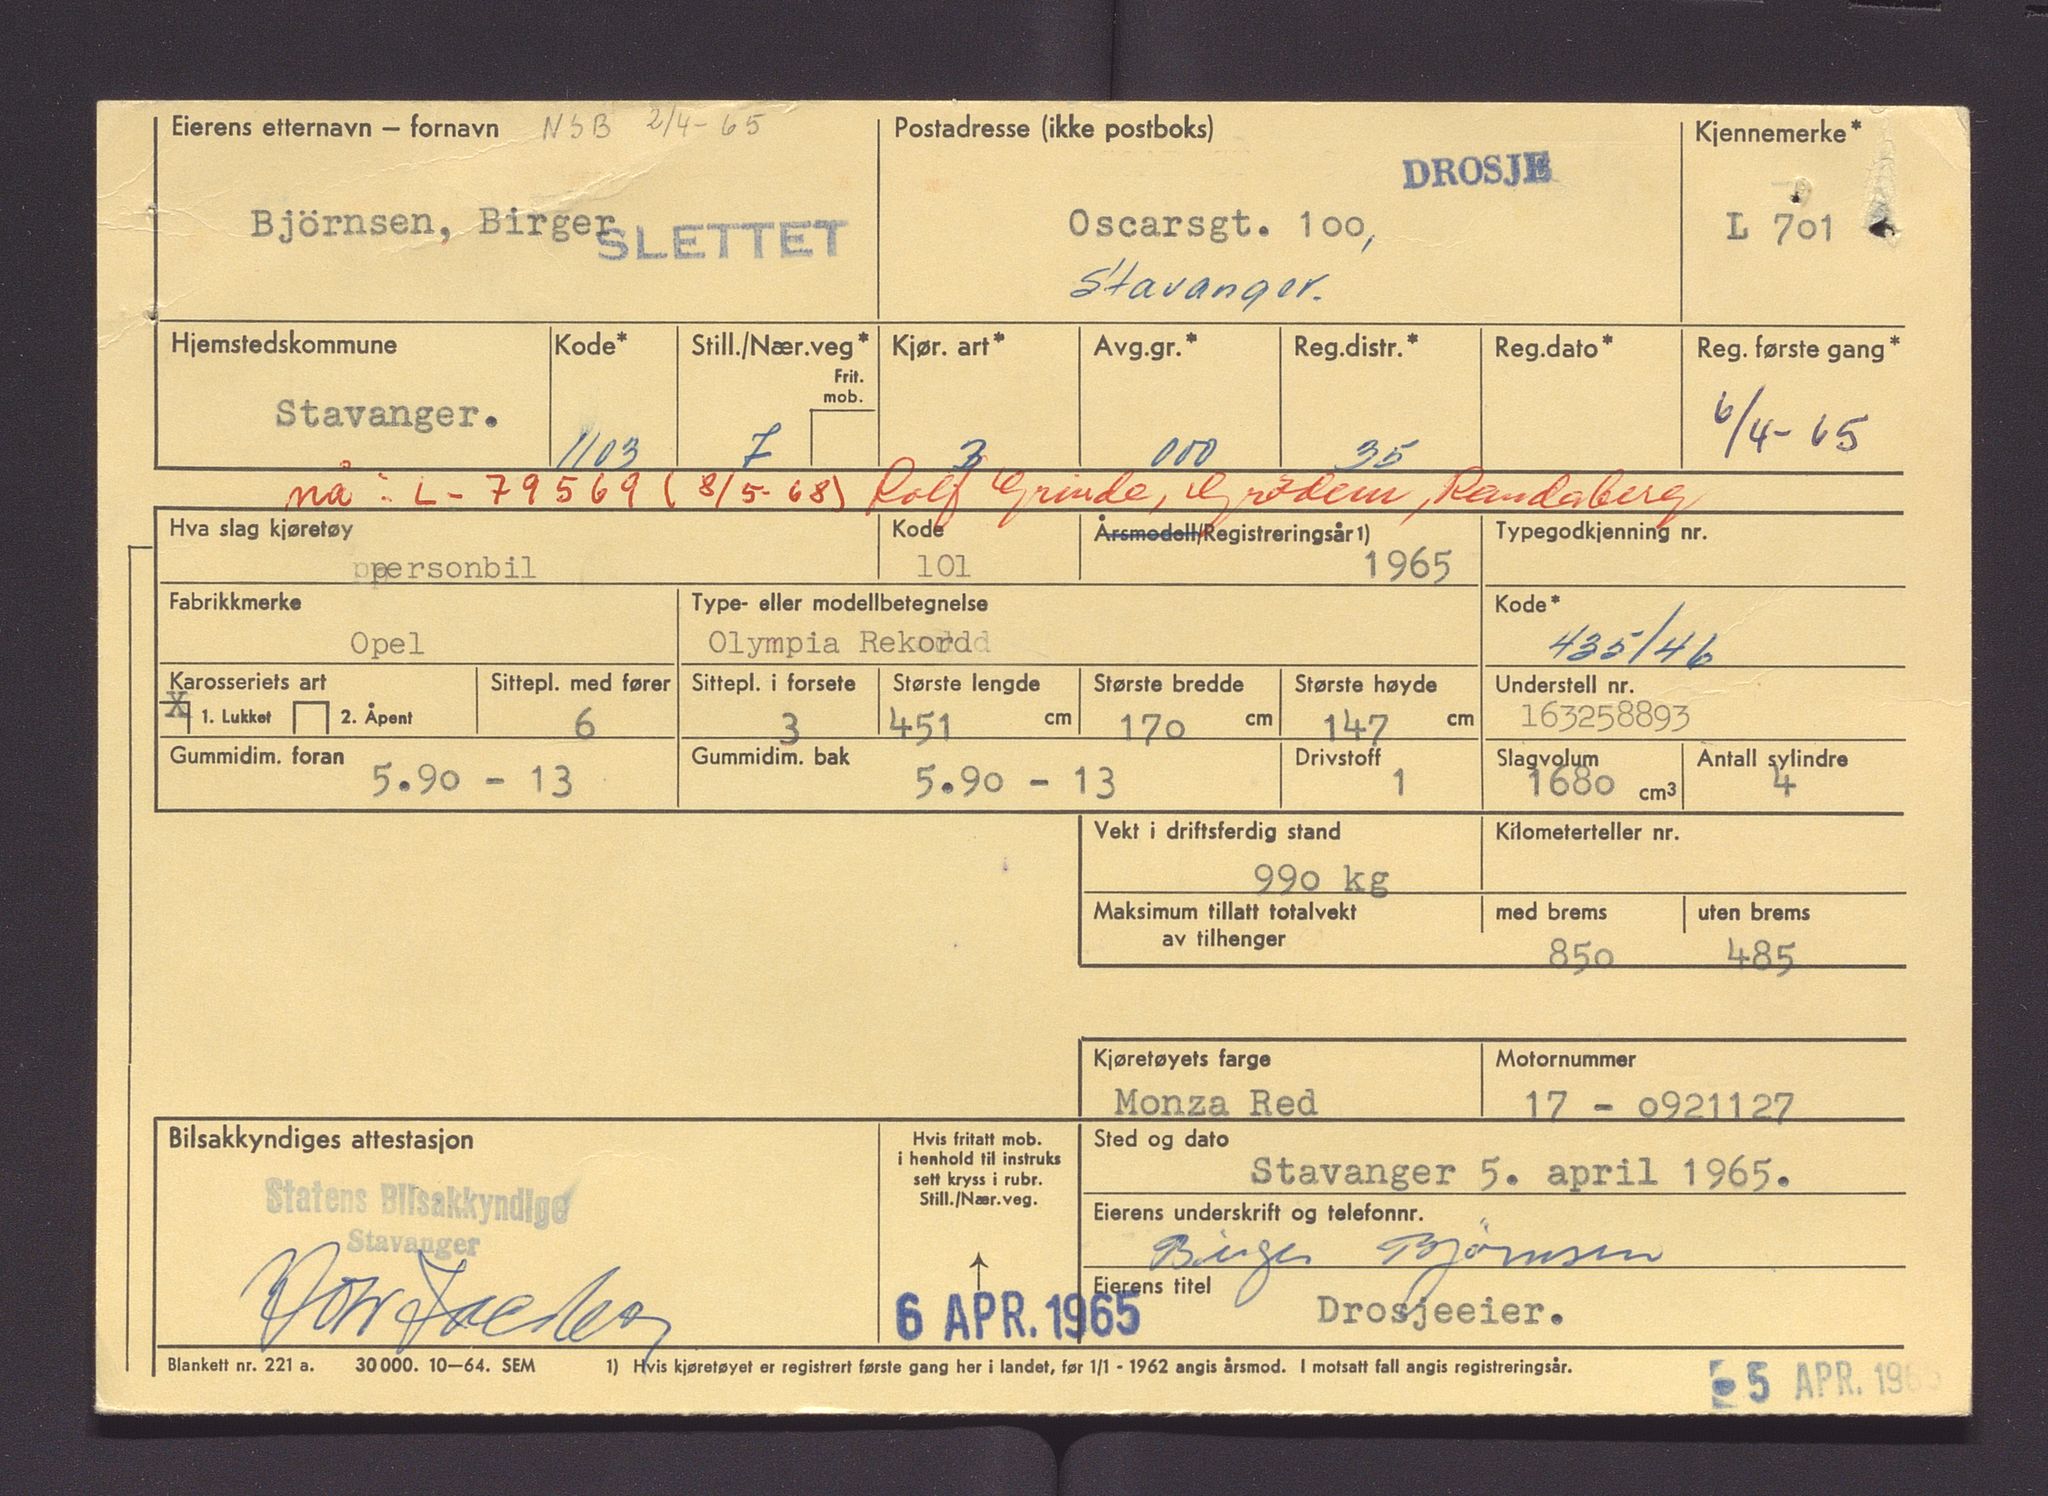 Eierens etternavn – fornavn NSB 2/4-65
Postadresse (ikke postboks)
Kjennemerke*
DROSJE
Björnsen, Birger
SLETTET
Oscarsgt. 100,
Stavanger.
L 701
Hjemstedskommune
Kode*
Still./Nær.veg*
Frit. mob.
Kjør. art*
Avg.gr.*
Reg.distr.*
Reg.dato*
Reg. første gang*
Stavanger.
1103
7
3
000
35
6/4-65
nå: L-79569 (8/5-68) Rolf Grinde, Grödem, Randaberg
Hva slag kjøretøy
Kode
Årsmodell/Registreringsår 1)
Typegodkjenning nr.
ppersonbil
101
1965
Fabrikkmerke
Type- eller modellbetegnelse
Kode*
Opel
Olympia Rekord
435/46
Karosseriets art
Sittepl. med fører
Sittepl. i forsete
Største lengde
Største bredde
Største høyde
Understell nr.
X 1. Lukket 2. Åpent
6
3
451 cm
170 cm
147 cm
163258893
Gummidim. foran
Gummidim. bak
Drivstoff
Slagvolum
Antall sylindre
5.90 - 13
5.90 - 13
1
1680 cm3
4
Vekt i driftsferdig stand
Kilometerteller nr.
990 kg
Maksimum tillatt totalvekt
av tilhenger
med brems
uten brems
850
485
Kjøretøyets farge
Motornummer
Monza Red
17 - 0921127
Bilsakkyndiges attestasjon
Hvis fritatt mob.
i henhold til instruks
sett kryss i rubr.
Still./Nær.veg.
Sted og dato
Stavanger 5. april 1965.
Statens Bilsakkyndige
Stavanger
Eierens underskrift og telefonnr.
Birger Bjørnsen
Eierens titel
Drosjeeier.
6 APR. 1965
Blankett nr. 221 a. 30 000. 10–64. SEM
1) Hvis kjøretøyet er registrert første gang her i landet, før 1/1 - 1962 angis årsmod. I motsatt fall angis registreringsår.
5 APR. 1965